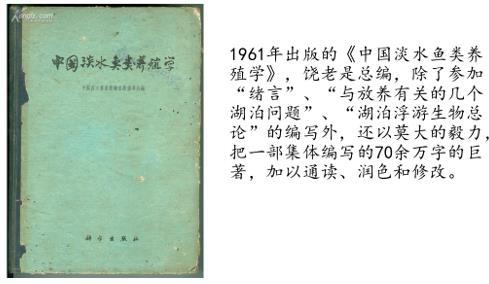 中国淡水鱼类养殖学
科学出版社
1961年出版的《中国淡水鱼类养
殖学》，饶老是总编，除了参加
“绪言”、“与放养有关的几个
湖泊问题”、“湖泊浮游生物总
论”的编写外，还以莫大的毅力，
把一部集体编写的70余万字的巨
著，加以通读、润色和修改。